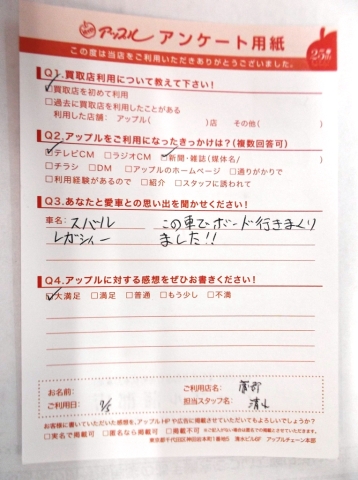 アップル アンケート用紙
この度は当店をご利用いただきありがとうございました。
25th
Q1.買取店利用について教えて下さい!
☑買取店を初めて利用
□過去に買取店を利用したことがある
利用した店舗: アップル( )店 その他( )
Q2.アップルをご利用になったきっかけは?(複数回答可)
☑テレビCM □ラジオCM ☑新聞・雑誌(媒体名/ )
□チラシ □DM □アップルのホームページ □通りがかりで
□利用経験があるので □紹介 □スタッフに誘われて
Q3.あなたと愛車との思い出を聞かせください!
車名: スバル この車でボード行きまくり
レガシィー ました!!
Q4.アップルに対する感想をぜひお書きください!
☑大満足 □満足 □普通 □もう少し □不満
お名前: ご利用店名:
ご利用日: 担当スタッフ名: 清水
お客様に書いていただいた感想を、アップルHPや広告に掲載させていただいてもよろしいでしょうか?
□実名で掲載可 □匿名なら掲載可 □掲載不可 ※ご記入がない場合は匿名での掲載とさせていただきます。
東京都千代田区神田岩本町1番地5 清水ビル6F アップルチェーン本部